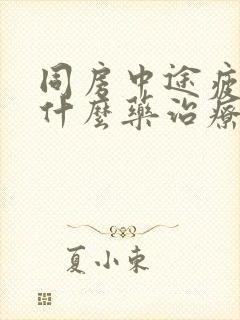 同房中途疲
什麼藥治療
夏小東